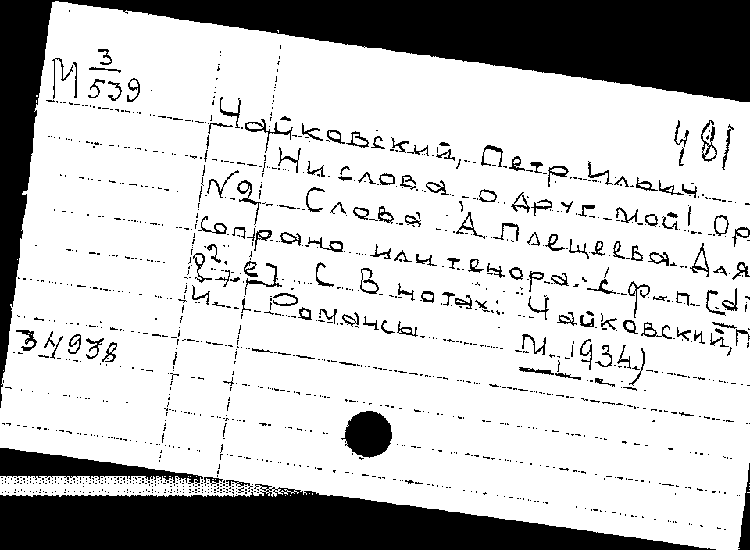 М 3/539
481
Чайковский, Петр Ильич
Ни слова, о друг мой! Ор
№2 Слова А Плещеева Для
сопрано или тенора с ф-п [di
С В нотах: Чайковский, П
И Романсы М, 1934)
34938